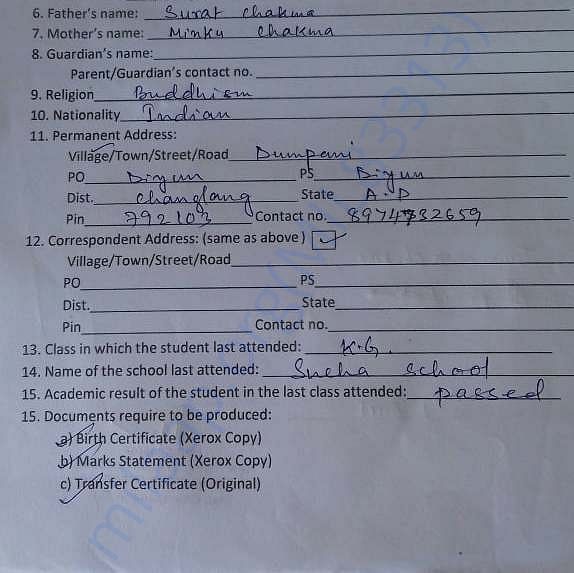 6. Father's name: Surat chakma
7. Mother's name: Minku chakma
8. Guardian's name:
Parent/Guardian's contact no.
9. Religion Buddhism
10. Nationality Indian
11. Permanent Address:
Village/Town/Street/Road Dumpani
PO Diyun PS Diyun
Dist. Changlang State A.P
Pin 792103 Contact no. 8974732659
12. Correspondent Address: (same as above)
Village/Town/Street/Road
PO PS
Dist. State
Pin Contact no.
13. Class in which the student last attended: K.G.
14. Name of the school last attended: Sneha school
15. Academic result of the student in the last class attended: passed
15. Documents require to be produced:
a) Birth Certificate (Xerox Copy)
b) Marks Statement (Xerox Copy)
c) Transfer Certificate (Original)